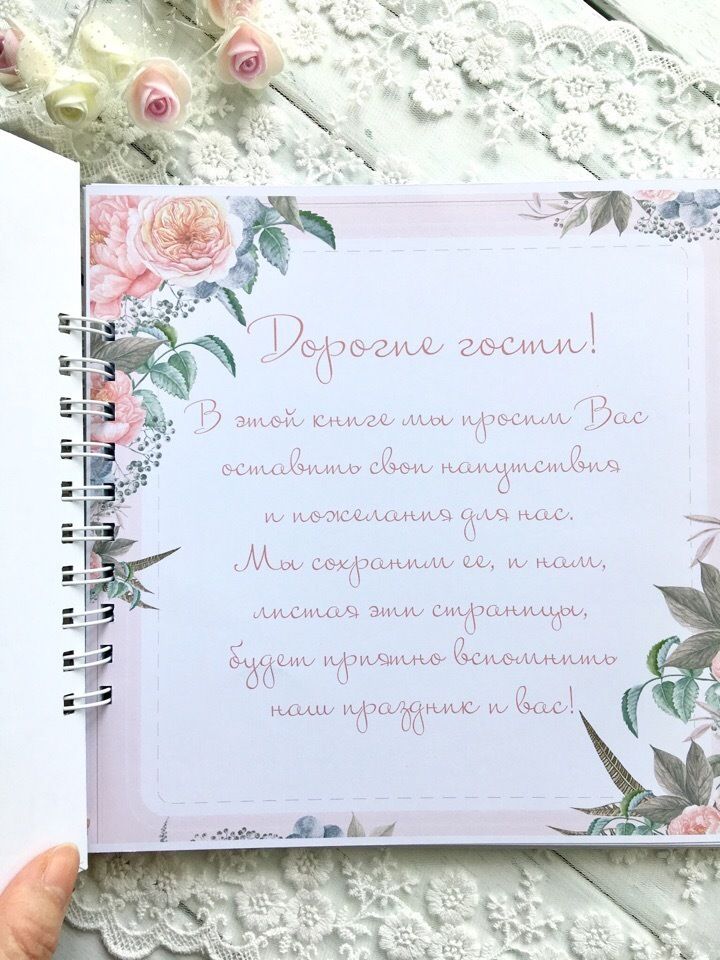 Дорогие гости!
В этой книге мы просим Вас
оставить свои напутствия
и пожелания для нас.
Мы сохраним ее, и нам,
листая эти страницы,
будет приятно вспомнить
наш праздник и вас!